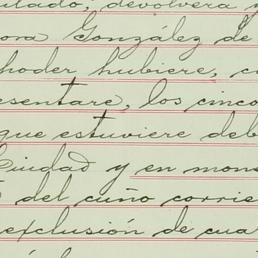 ultado, devolverá y
ora González de
hoder hubiere, c
esentare, los cinco
que estuviere deb
Ciudad y en mon
del cuño corrie
exclusión de cua